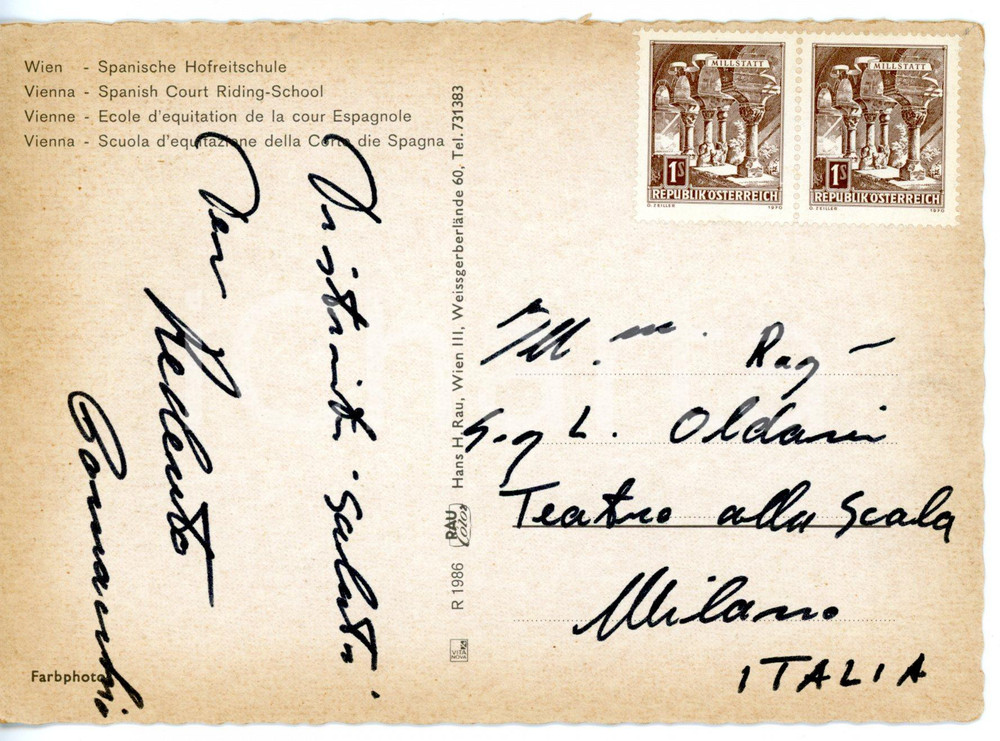 Wien - Spanische Hofreitschule
Vienna - Spanish Court Riding-School
Vienne - Ecole d'equitation de la cour Espagnole
Vienna - Scuola d'equitazione della Corte die Spagna
Distinti saluti
Farbphoto
Hans H. Rau, Wien III, Weissgerberlände 60, Tel. 731383
RAU
Color
R 1986
VITA
NOVA
MILLSTATT
1S
REPUBLIK ÖSTERREICH
O. ZEILLER 1970
MILLSTATT
1S
REPUBLIK ÖSTERREICH
O. ZEILLER 1970
Ill.mo Rag
Sig L. Oldani
Teatro alla Scala
Milano
ITALIA